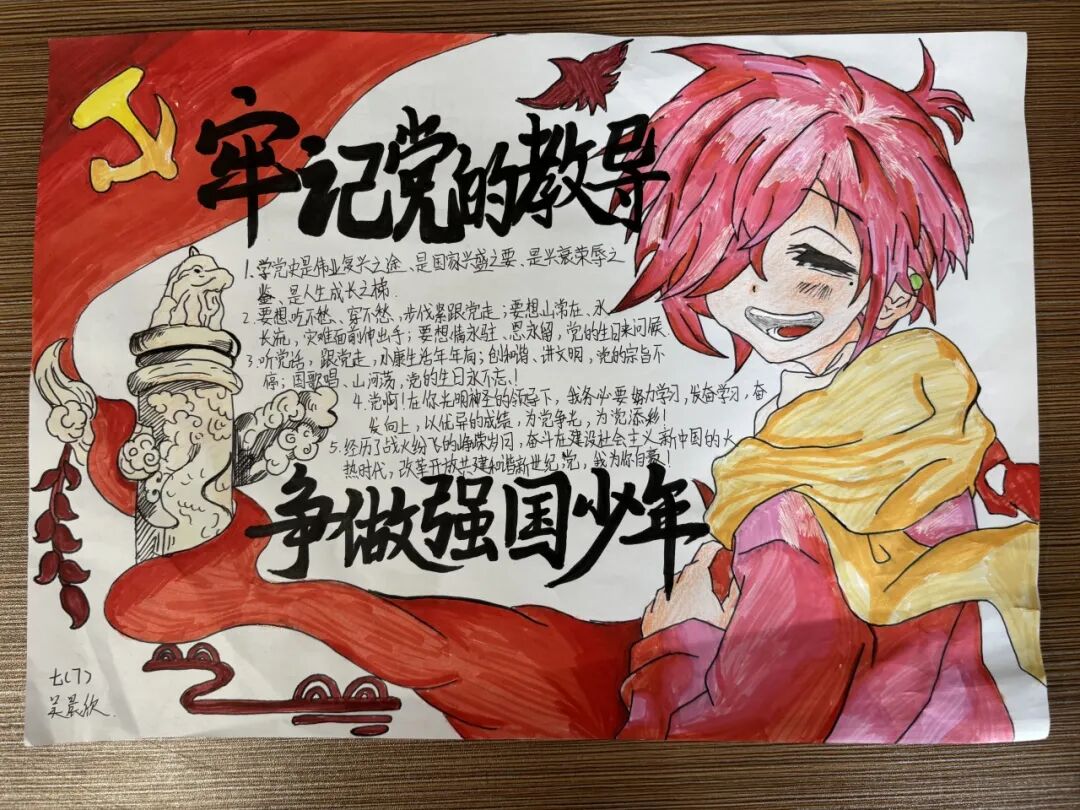 牢记党的教导
1.学党史是伟业复兴之途、是国家兴盛之要、是兴衰荣辱之
鉴、是人生成长之梯.
2.要想吃不愁、穿不愁,步伐紧跟党走;要想山常在、水
长流,灾难面前伸出手;要想情永驻、恩永留,党的生日来问候、
3.听党话,跟党走,小康生活年年有;创和谐、讲文明,党的宗旨不
停;国歌唱、山河荡,党的生日永不忘!
4.党啊!在你光明神圣的领导下,我务必要努力学习,发奋学习,奋
发向上,以优异的成绩,为党争光,为党添彩!
5.经历了战火纷飞的峥嵘岁月,奋斗在建设社会主义新中国的火
热时代,改革开放共建和谐新世纪,党,我为你自豪!
争做强国少年
七(7)
吴晨欣